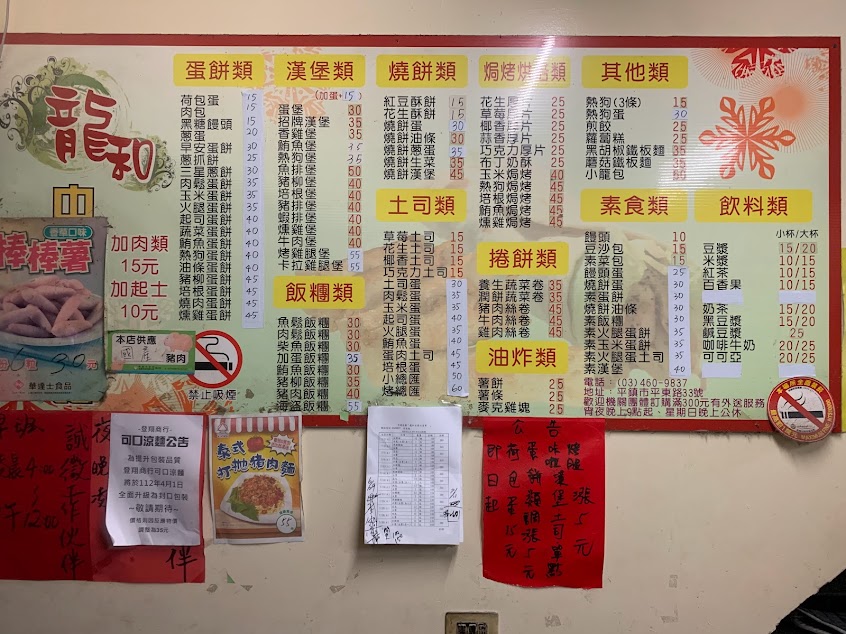 龍和
蛋餅類
荷包蛋 15
肉包 15
黑糖饅頭 15
蔥蛋 20
早安蛋餅 30
蔥抓餅 25
三星蔥蛋餅 30
肉鬆蛋餅 35
玉米蛋餅 35
火腿蛋餅 35
起司蛋餅 40
蔬菜蛋餅 40
鮪魚蛋餅 40
熱狗蛋餅 40
油條蛋餅 40
豬柳蛋餅 45
培根蛋餅 45
燒肉蛋餅 45
燻雞蛋餅 45
漢堡類
(加蛋+15)
蛋堡 30
招牌漢堡 35
香雞堡 35
鮪魚堡 35
熱狗堡 35
魚排堡 50
豬排堡 40
豬柳堡 40
培根堡 40
蝦排堡 40
燻雞堡 40
牛肉堡 40
烤雞腿堡 55
卡拉雞腿堡 55
飯糰類
魚鬆飯糰 30
肉鬆飯糰 30
柴魚飯糰 30
加蛋飯糰 35
鮪魚飯糰 35
燻雞飯糰 40
海苔飯糰
燒餅類
紅豆酥餅 15
花生酥餅 15
燒餅蛋 30
燒餅油條 30
燒餅蔥蛋 35
燒餅生菜 35
燒餅漢堡 45
土司類
草莓土司 15
花生土司 15
椰香土司 15
巧克力土司 15
土司蛋 30
肉鬆蛋 35
玉米蛋 35
起司蛋 35
火腿蛋
鮪魚蛋
蛋土司
培根蛋
小總匯 50
總匯 60
焗烤烘焙類
花生厚片 25
草莓厚片 25
椰香厚片 25
蒜香厚片 25
巧克力厚片 25
布丁奶酥 25
玉米焗烤 40
熱狗焗烤 45
培根焗烤 45
鮪魚焗烤 45
燻雞焗烤 45
捲餅類
養生蔬菜卷 30
潤餅蔬菜卷 35
豬肉絲卷 40
牛肉絲卷 45
雞肉絲卷 45
油炸類
薯餅 25
薯條 25
麥克雞塊 25
其他類
熱狗(3條) 15
熱狗蛋 30
煎餃 25
蘿蔔糕 25
黑胡椒鐵板麵 35
蘑菇鐵板麵 35
小籠包
素食類
饅頭 10
豆沙包 15
素菜包 15
饅頭蛋 25
素漢堡 30
素蛋餅 30
燒餅油條 30
素飯糰 30
素火腿蛋餅 35
素玉米蛋餅 35
素火腿蛋土司 35
素漢蛋 40
飲料類
小杯/大杯
豆漿 15/20
米漿 10/15
紅茶 10/15
百香果 10/15
奶茶 15/20
黑豆漿 15/20
鹹豆漿 25
咖啡牛奶 20/25
可可亞 20/25
電話：(03)460-9837
地址：平鎮市平東路33號
歡迎機關團體訂購滿300元有外送服務
宵夜晚上9點起、星期日晚上公休
加肉類
15元
加起士
10元
棒棒薯
30元
華達士食品
本店供應
國產
豬肉
禁止吸煙
-登翔商行-
可口涼麵公告
為提升包裝品質
登翔商行可口涼麵
將於112年4月1日
全面升級為封口包裝
~敬請期待~
價格同步反映物價
調整為38元
泰式
打拋猪肉麵
55元
誠徵工作伙伴
夜晚
公告
燒餅漲5元
蛋餅類調漲5元
荷包蛋15元
即日起